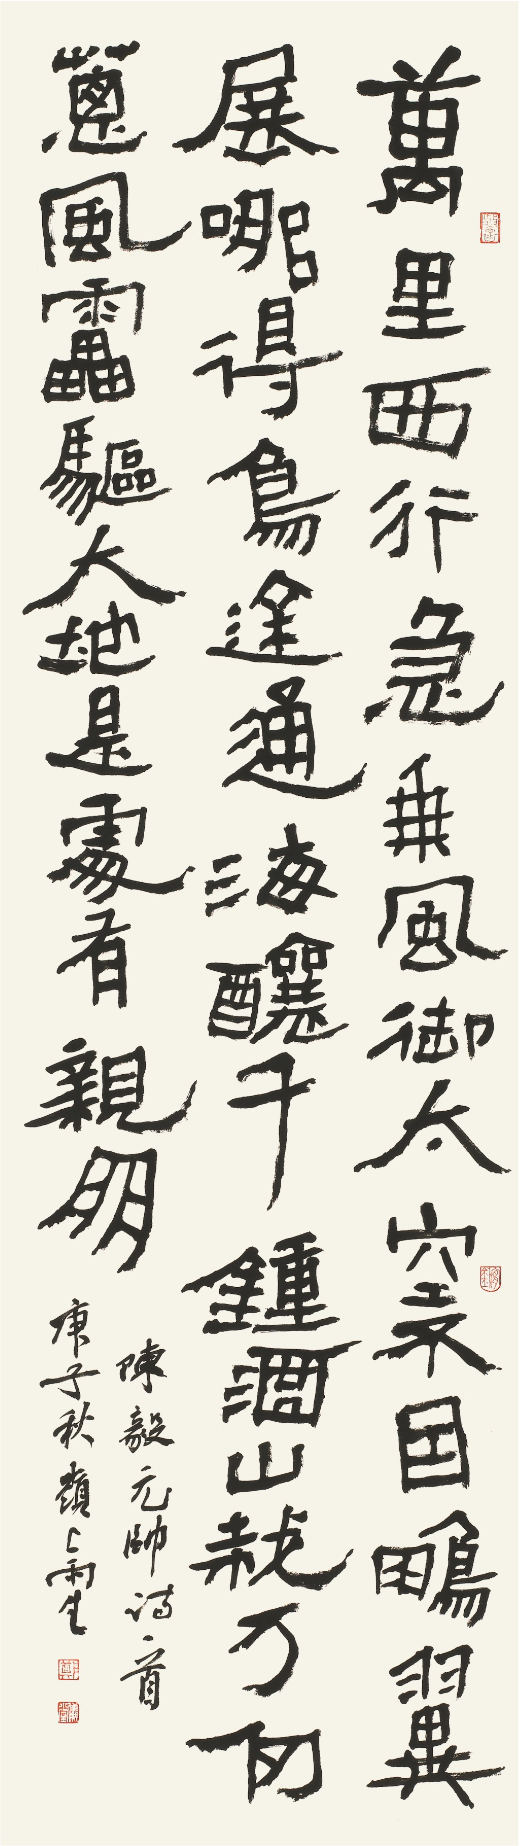 萬里西行急乘風御太空不因鵬翼
展哪得鳥途通海釀千鍾酒山栽万仞
蔥風靁驅大地是處有親朋
陳毅元帥詩一首
庚子秋嶺上雨生